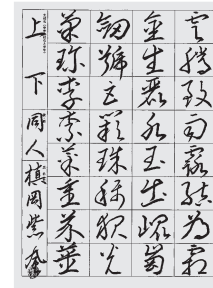 雲騰致雨露結為霜
金生麗水玉出崐岡
劍號巨闕珠稱夜光
菓珍李柰菜重芥薑
上下同人